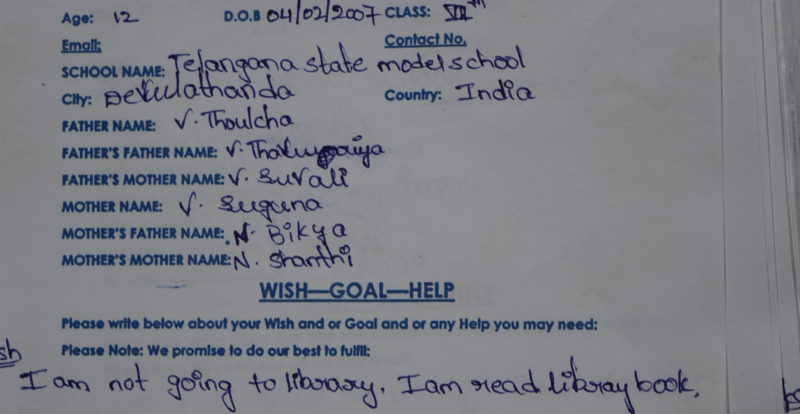 Age: 12 D.O.B 04/02/2007 CLASS: VIIth
Email: Contact No.
SCHOOL NAME: Telangana state model school
City: Devulathanda Country: India
FATHER NAME: V. Thoulcha
FATHER'S FATHER NAME: V.
FATHER'S MOTHER NAME: V. Suvali
MOTHER NAME: V. Suguna
MOTHER'S FATHER NAME: N. Bikya
MOTHER'S MOTHER NAME: N. Shanthi
WISH—GOAL—HELP
Please write below about your Wish and or Goal and or any Help you may need:
Please Note: We promise to do our best to fulfil:
sh
I am not going to libraray. I am read libray book.